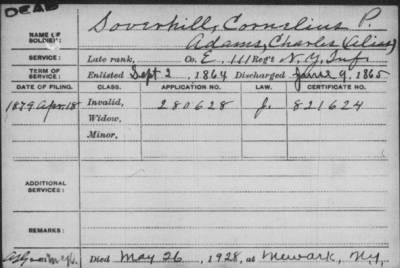 DEAD
NAME OF SOLDIER: Soverhill, Cornelius P.
Adams, Charles (Alias)
SERVICE: Late rank, Co. E, 141 Reg't N.Y. Inf.
TERM OF SERVICE: Enlisted Sept 2, 1864 Discharged June 9, 1865
DATE OF FILING. CLASS. APPLICATION NO. LAW. CERTIFICATE NO.
1879 Apr. 18 Invalid, 280628 J. 821624
Widow,
Minor,
ADDITIONAL SERVICES:
REMARKS:
Died May 26, 1928, at Newark, N.Y.